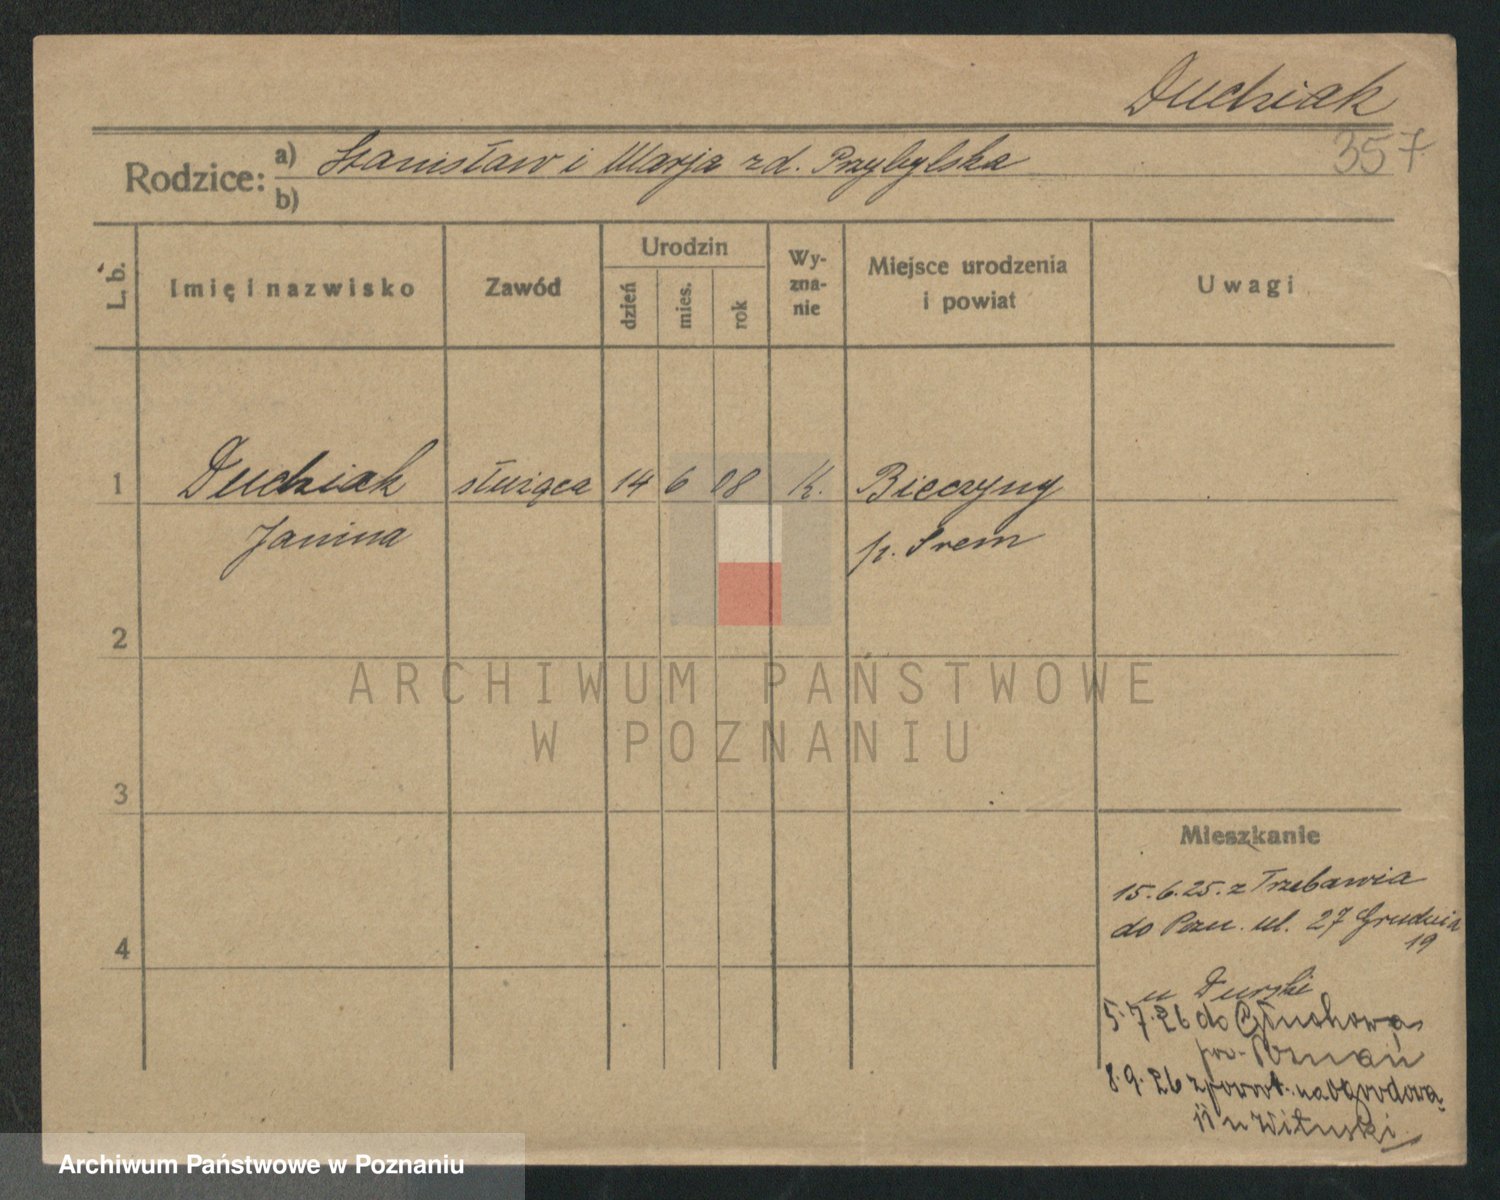 Duchiak
357
Rodzice: a) Stanisław i Marja zd. Przybylska
b)
L. b.
Imię i nazwisko
Zawód
Urodzin
dzień
mies.
rok
Wy-
zna-
nie
Miejsce urodzenia
i powiat
Uwagi
1 Duchiak służąca 14 6 08 K. Bieczyny
Janina p. Śrem
2
3
4
Mieszkanie
15.6.25. z Trzebawia
do Pozn. ul. 27 Grudnia
19
u Durski
5.7.26 do Głuchowa
pow. Poznań
8.9.26 zpowrot. na Ogrodową
11 u Wituski
ARCHIWUM PAŃSTWOWE
W POZNANIU
Archiwum Państwowe w Poznaniu